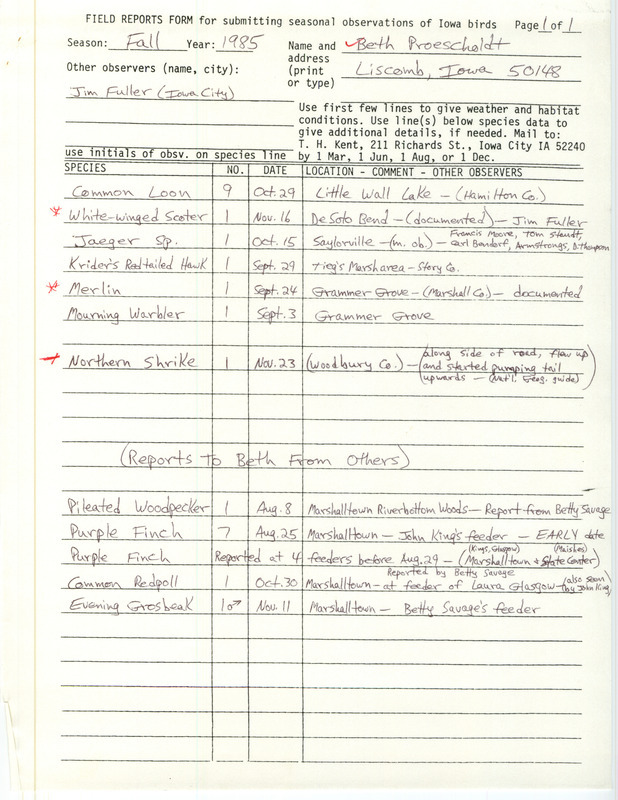 FIELD REPORTS FORM for submitting seasonal observations of Iowa birds Page 1 of 1
Season: Fall Year: 1985 Name and address (print or type) Beth Proescholdt
Liscomb, Iowa 50148
Other observers (name, city):
Jim Fuller (Iowa City)
Use first few lines to give weather and habitat
conditions. Use line(s) below species data to
give additional details, if needed. Mail to:
T. H. Kent, 211 Richards St., Iowa City IA 52240
use initials of obsv. on species line by 1 Mar, 1 Jun, 1 Aug, or 1 Dec.
SPECIES NO. DATE LOCATION - COMMENT - OTHER OBSERVERS
Common Loon 9 Oct. 29 Little Wall Lake - (Hamilton Co.)
* White-winged Scoter 1 Nov. 16 DeSoto Bend - (documented) - Jim Fuller
Francis Moore, Tom Staudt,
Jaeger Sp. 1 Oct. 15 Saylorville - (m. ob.) - Carl Bendorf, Armstrongs, B. Thompson
Krider's Redtailed Hawk 1 Sept. 29 Tieg's Marsharea - Story Co.
* Merlin 1 Sept. 24 Grammer Grove - (Marshall Co.) - documented
Mourning Warbler 1 Sept. 3 Grammer Grove
Northern Shrike 1 Nov. 23 (Woodbury Co.) - (along side of road, flew up
and started pumping tail
upwards - (Nat'l. Geog. guide))
(Reports To Beth From Others)
Pileated Woodpecker 1 Aug. 8 Marshalltown Riverbottom Woods - Report from Betty Savage
Purple Finch 7 Aug. 25 Marshalltown - John King's feeder - EARLY date
(Kings, Glasgow) (Maishes)
Purple Finch Reported at 4 feeders before Aug. 29 - (Marshalltown & State Center)
Reported by Betty Savage
Common Redpoll 1 Oct. 30 Marshalltown - at feeder of Laura Glasgow - (also seen by John King)
Evening Grosbeak 1♂ Nov. 11 Marshalltown - Betty Savage's feeder